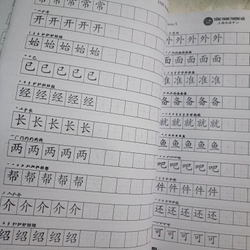 常常常常常
开开开开开
始始始始始
已已已已已
经经经经经
长长长长长
两两两两两
帮帮帮帮帮
介介介介介
绍绍绍绍绍
TIẾNG TRUNG PHƯƠNG HÀ
外外外外外
面面面面面
准准准准准
备备备备备
就就就就就
鱼鱼鱼鱼鱼
吧吧吧吧吧
件件件件件
还还还还还
可可可可可